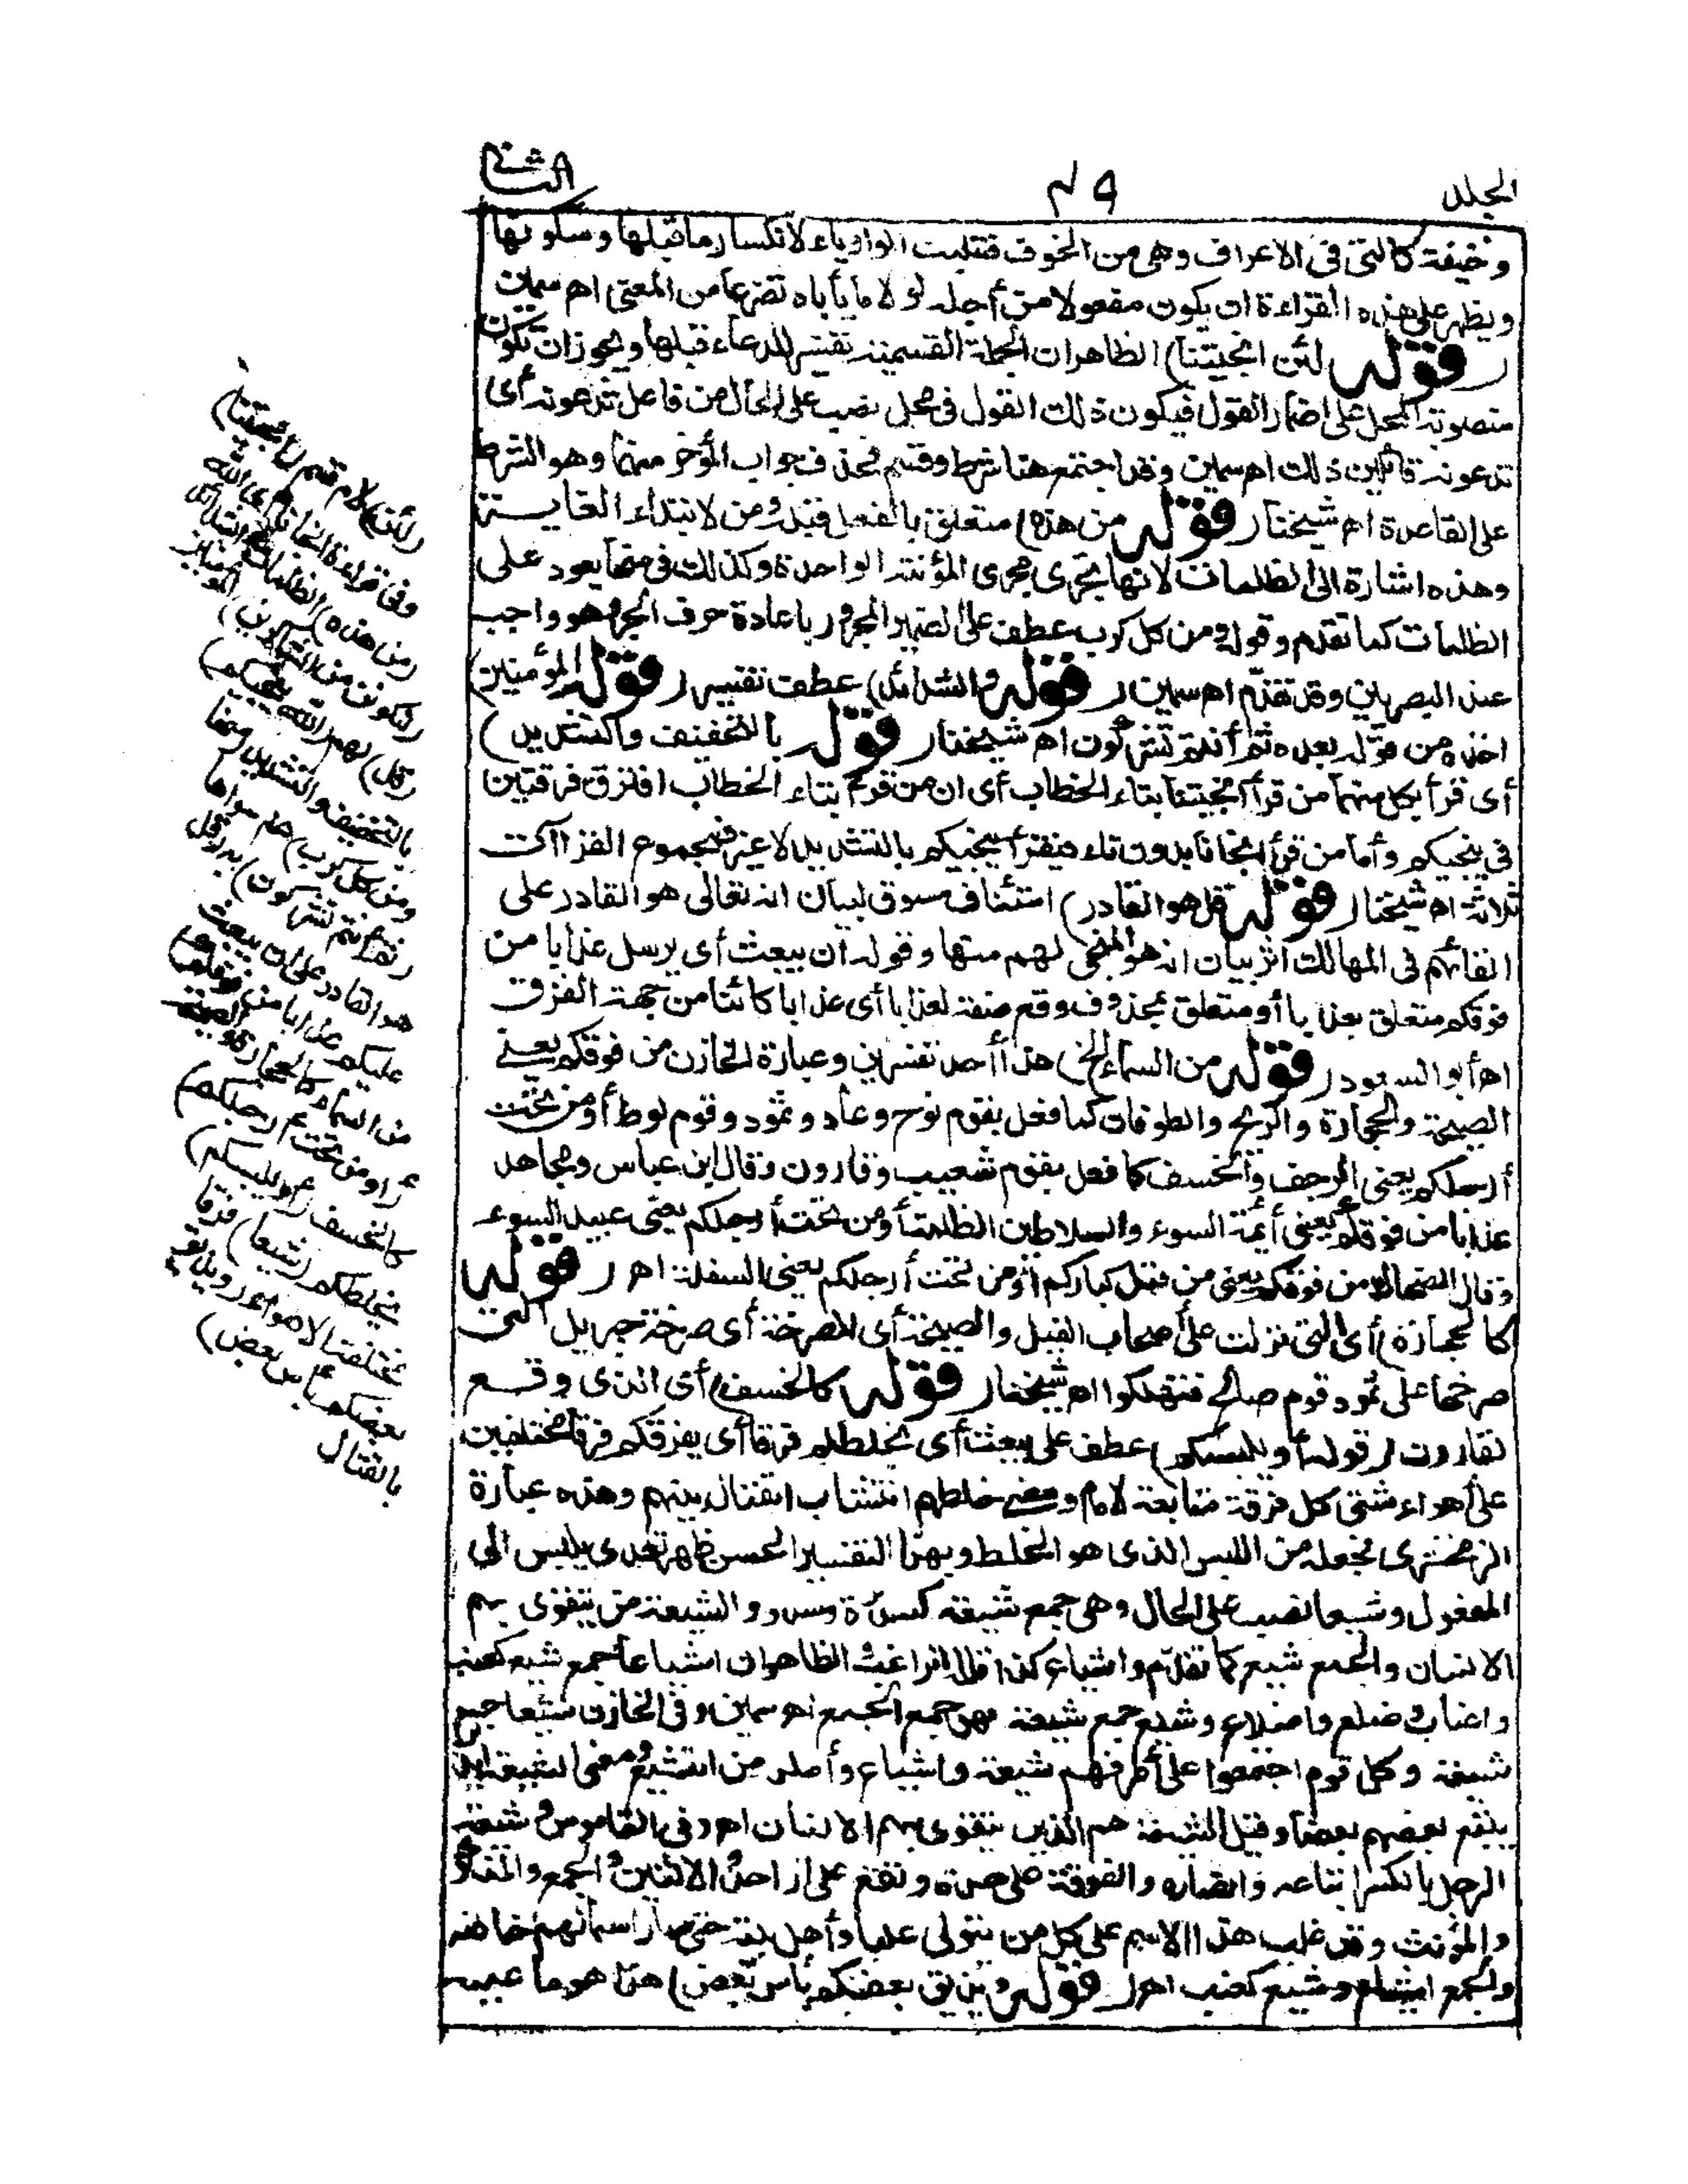 المجلد
٤٩
الثاني
وخيفة كالتي في الاعراف وهي من الخوف فقلبت الواو ياء لانكسار ما قبلها وسكونها
ويظهر على هذه القراءة ان يكون مفعولا من أجله لولا ما يأباه تضرعا من المعنى اه سمين
(قوله لئن انجيتنا) الظاهر ان الجملة القسمية تفسير للدعاء قبلها ويجوز ان تكون
منصوبة المحل على اضمار القول فيكون ذلك القول في محل نصب على الحال من فاعل تدعونه أى
تدعونه قائلين ذلك اه سمين وقد اجتمع هنا شرط وقسم فحذف جواب المؤخر منهما وهو الشرط
على القاعدة اه شيخنا (قوله من هذه) متعلق بالفعل قبله ومن لابتداء الغاية
وهذه اشارة الى الظلمات لانها تجرى مجرى المؤنثة الواحدة وكذلك في منها يعود على
الظلمات كما تقدم وقوله ومن كل كرب عطف على الضمير المجرور باعادة حرف الجر وهو واجب
عند البصريين وقد تقدم اه سمين (قوله والشدائد) عطف تفسير (قوله المؤمنين)
اخذه من قوله بعده ثم أنتم تشركون اه شيخنا (قوله بالتخفيف والتشديد)
أى قرأ بكل منهما من قرأ أنجيتنا بتاء الخطاب أى ان من قرأ بتاء الخطاب افترق فرقتين
في ينجيكم وأما من قرأ أنجانا بدون تاء فيقرأ ينجيكم بالتشديد لا غير فمجموع القراآت
ثلاثة اه شيخنا (قوله قل هو القادر) استئناف مسوق لبيان انه تعالى هو القادر على
القائهم في المهالك اثر بيان انه هو المنجى لهم منها وقوله أن يبعث أى يرسل عذابا من
فوقكم متعلق بعذابا أو متعلق بمحذوف وقع صفة لعذابا أى عذابا كائنا من جهة الفوق
اه أبو السعود (قوله من السماء الخ) هذا أحد تفسيرين وعبارة الخازن من فوقكم يعنى
الصيحة والحجارة والريح والطوفان كما فعل بقوم نوح وعاد وثمود وقوم لوط أو من تحت
أرجلكم يعنى الرجف والخسف كما فعل بقوم شعيب وقارون وقال ابن عباس ومجاهد
عذابا من فوقكم يعنى أئمة السوء والسلاطين الظلمة أو من تحت أرجلكم يعنى عبيد السوء
وقال الضحاك من فوقكم يعنى من قبل كباركم أو من تحت أرجلكم يعنى السفلة اه (قوله
كالحجارة) أى التي نزلت على أصحاب الفيل والصيحة أى الصرخة أى صرخة جبريل التي
صرخها على ثمود قوم صالح فهلكوا اه شيخنا (قوله كالخسف) أى الذى وقع
لقارون (قوله أو يلبسكم) عطف على يبعث أى يخلطكم فرقا أى يفرقكم فرقا مختلفين
على أهواء شتى كل فرقة متابعة لامام ومعنى خلطهم انتشاب القتال بينهم وهذه عبارة
الزمخشرى فجعله من اللبس الذى هو الخلط وبهذا التفسير الحسن ظهر تعدى يلبس الى
المفعول وشيعا نصب على الحال وهى جمع شيعة كسدرة وسدر والشيعة من يتقوى بهم
الانسان والجمع شيع كما تقدم واشياع كذا قاله الراغب والظاهر ان اشياعا جمع شيع كعنب
واعناب وضلع واضلاع وشيع جمع شيعة فهو جمع الجمع اه سمين وفي الخازن شيعا جمع
شيعة وكل قوم اجتمعوا على أمر فهم شيعة واشياع وأصله من التشيع ومعنى الشيعة الذين
يتبع بعضهم بعضا وقيل الشيعة هم الذين يتقوى بهم الانسان اه وفي القاموس وشيعة
الرجل بالكسر اتباعه وانصاره والفرقة على حدة وتقع على الواحد والاثنين والجمع والمذكر
والمؤنث وقد غلب هذا الاسم على كل من يتولى عليا وأهل بيته حتى صار اسما لهم خاصة
والجمع اشياع وشيع كعنب اه (قوله ويذيق بعضكم بأس بعض) هذا هو ما عبيه
(لئن) لام قسم (أنجيتنا)
وفي قراءة أنجانا أى الله
(من هذه) الظلمات والشدائد
(لنكونن من الشاكرين) المؤمنين
(قل) لهم (الله ينجيكم)
بالتخفيف والتشديد (منها
ومن كل كرب) غم سواها
(ثم أنتم تشركون) به (قل
هو القادر على أن يبعث
عليكم عذابا من فوقكم)
من السماء كالحجارة والصيحة
(أو من تحت أرجلكم)
كالخسف (أو يلبسكم)
يخلطكم (شيعا) فرقا
مختلفة الاهواء (ويذيق
بعضكم بأس بعض)
بالقتال